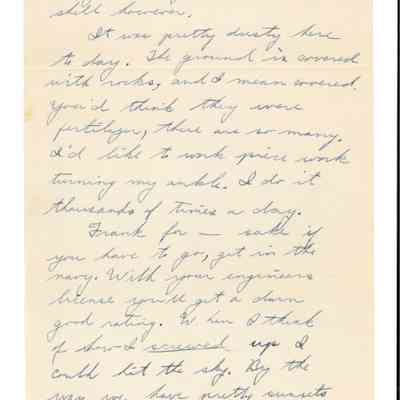 still however.
It was pretty dusty here
to day. The ground is covered
with rocks, and I mean covered.
You'd think they were
fertilizer, there are so many.
I'd like to work piece work
turning my ankle. I do it
thousands of times a day.
Frank for — sake if
you have to go, get in the
navy. With your engineers
license you'll get a darn
good rating. When I think
of how I screwed up I
could hit the sky. By the
way we have pretty sunsets